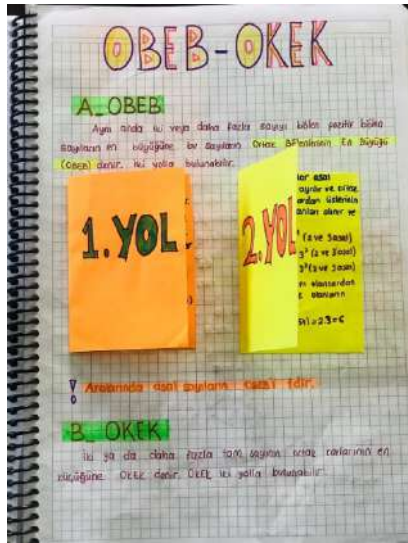 OBEB-OKEK
A_OBEB
Aynı anda iki veya daha fazla sayıyı bölen pozitif böl
sayıların en büyüğüne bu sayıların Ortak Bölenlerinin En Büyüğü
(OBEB) denir. İki yolla bulunabilir.
1.YOL
2.YOL
lar asal
ayrılır ve
üslerinin
alınır ve
(2 ve 3 asal)
3² (2 ve 3 asal)
3² (2 ve 3 asal)
olanların
=2.3=6
! Aralarında asal sayıların OBEB'i 1'dir.
B_ OKEK
İki ya da daha fazla tam sayının ortak katlarının en
küçüğüne OKEK denir. OKEK iki yolla bulunabilir.